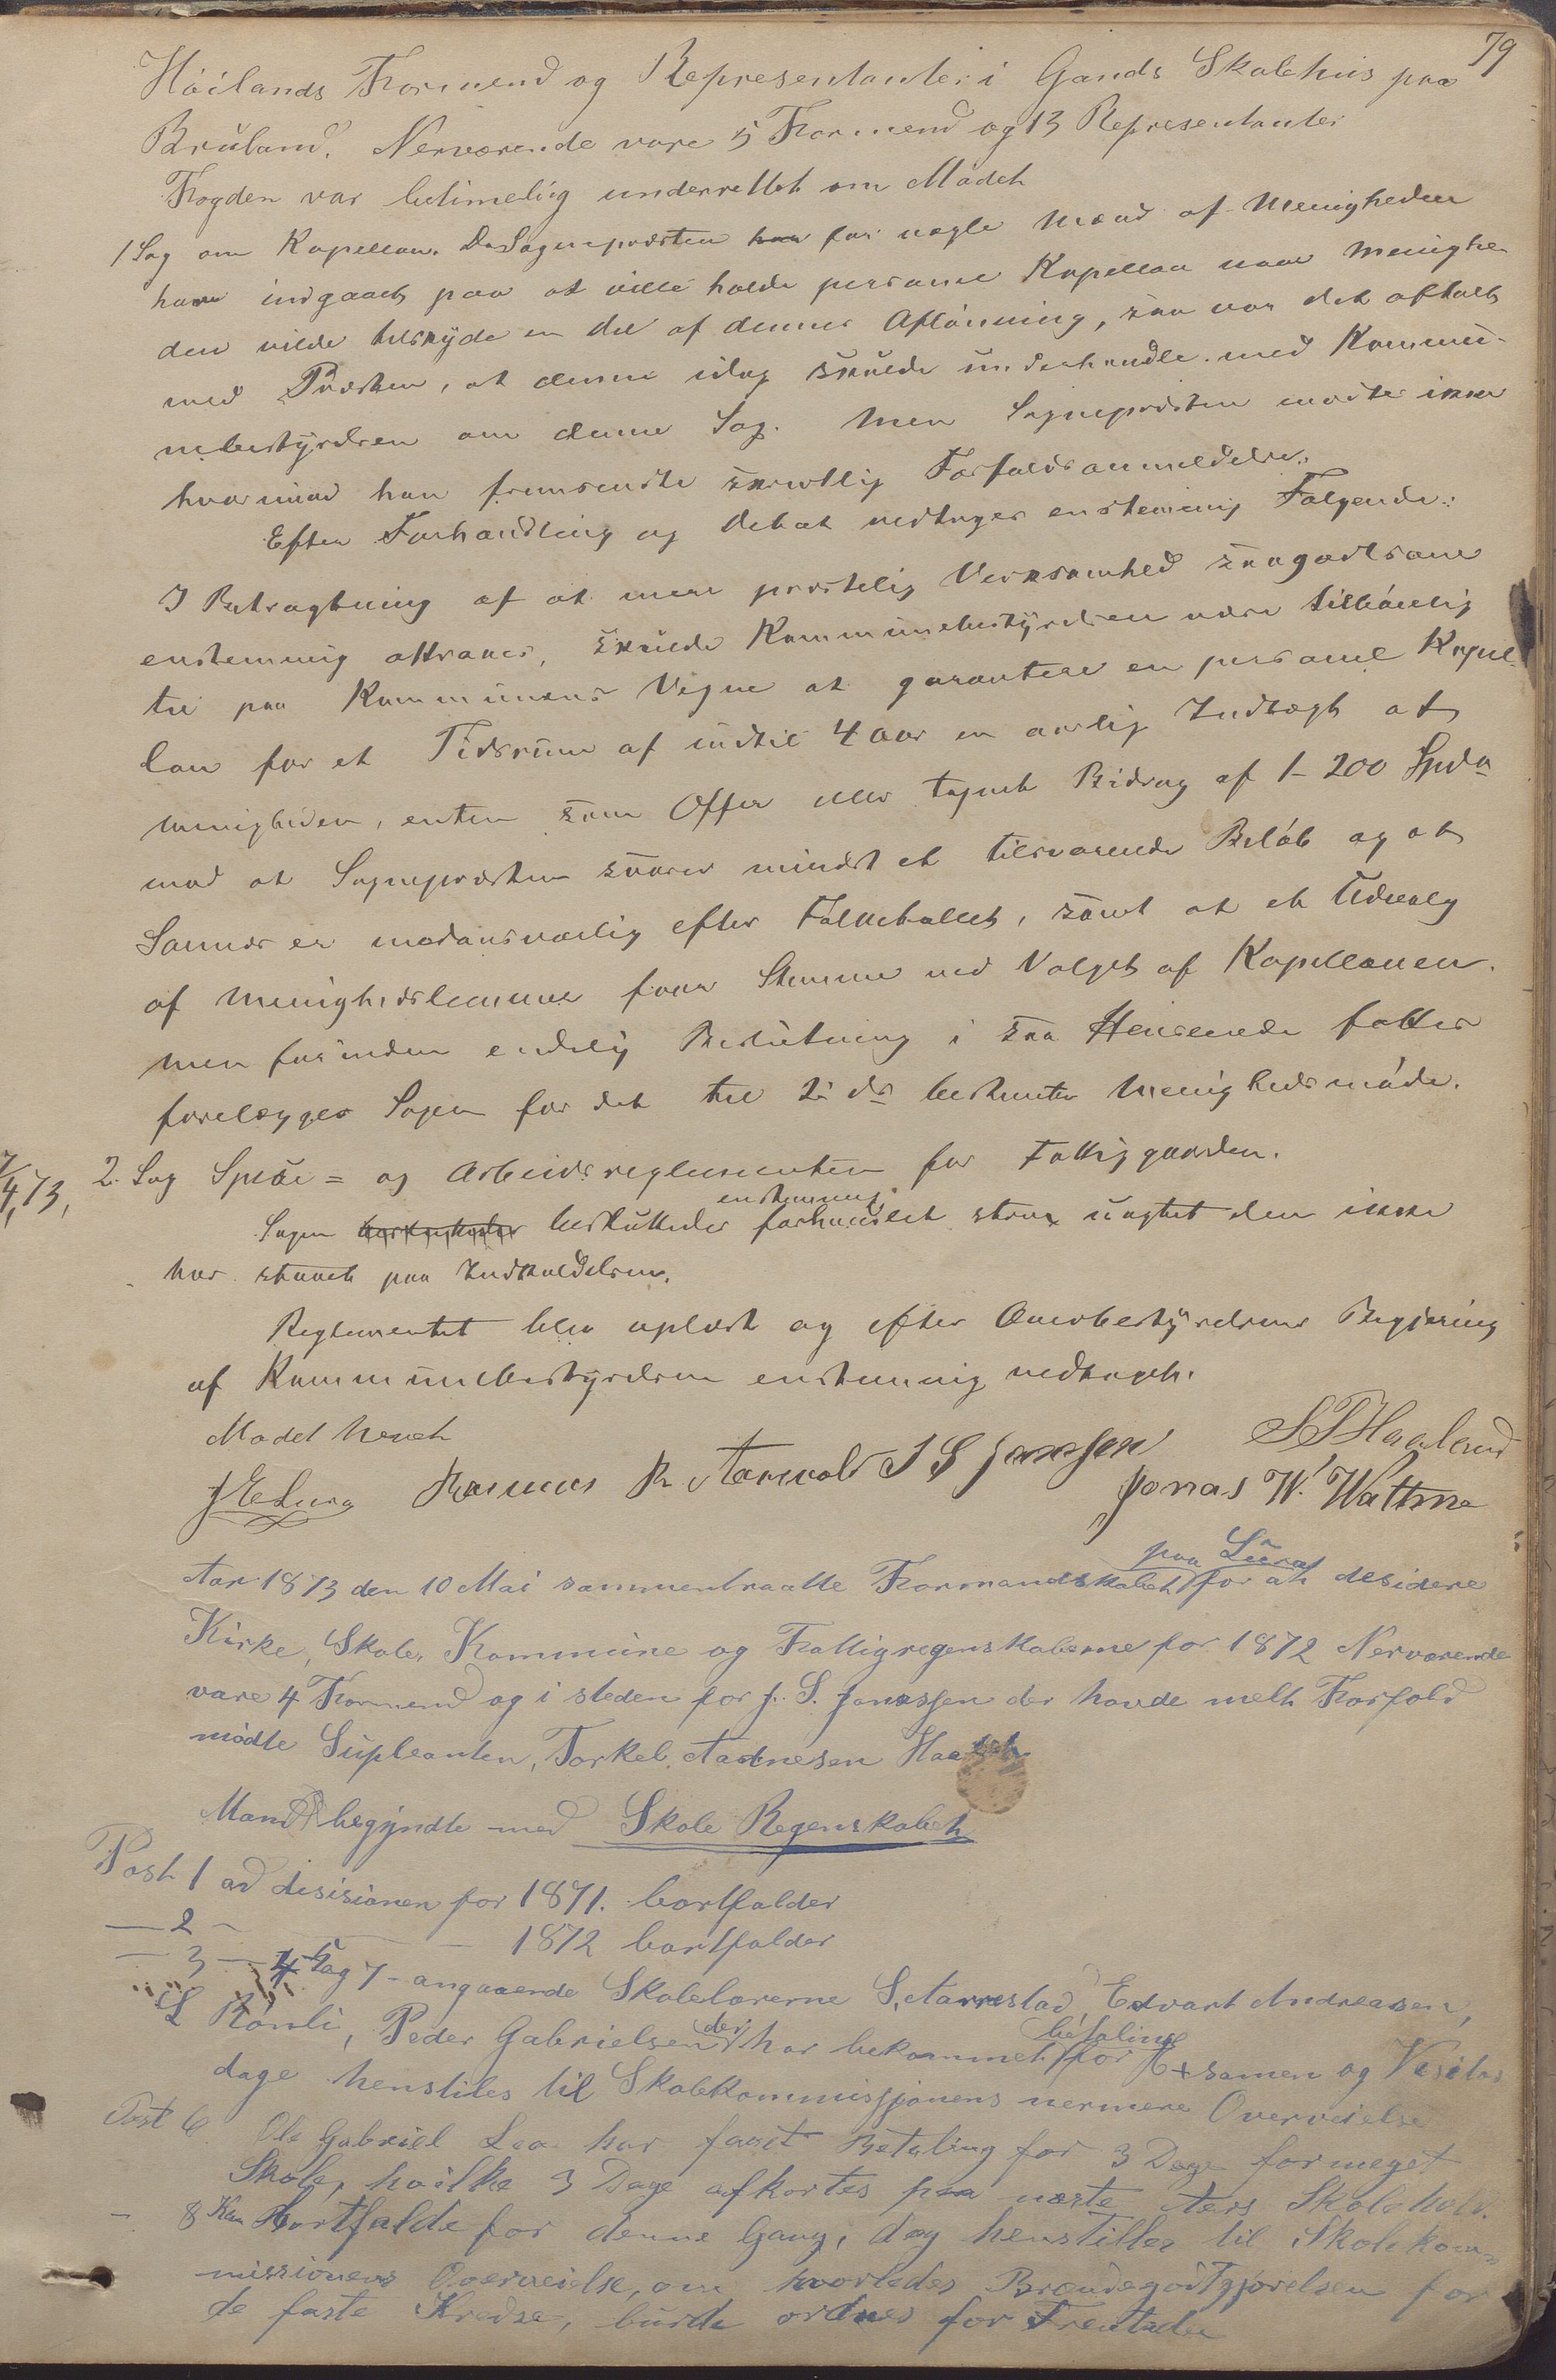 79
Höilands Formend og Representanter i Gands Skolehus paa
Bruland. Nerværende vare 5 Formend og 13 Representanter
Fogden var betimelig underrettet om Mödet
1 Sag om Kapellan. Da Sognepræsten har for nogle Mænd af Menigheden
have indgaaet paa at ville holde personel Kapellan naar Menighe
den vilde tilskyde en del af dennes Aflönning, saa var det aftalt
med Præsten, at denne idag skulde underhandle med Kommu-
nebestyrelsen om denne Sag. Men Sognepræsten mødte ikke
hvorimod han fremsendte skriftlig Forfaldsanmeldelse.
Efter Forhandling og Debat vedtages enstemmig Følgende:
I Betragtning af at mere præstelig Verksomhed saagodtsom
enstemmig attraaes, skulde Kommunebestyrelsen være tilböielig
til paa Kommunens Vegne at garantere en personel Kapel
lan for et Tidsrum af indtil 4 Aar en aarlig Indtægt af
Menigheden, enten som Offer eller tegnet Bidrag af 1-200 Spd
mod at Sognepræsten svarer mindst et tilsvarende Belöb og at
Sannes er medansvarlig efter Folketallet, samt at et Udvalg
af Menighedslemmer faar Stemme ved Valget af Kapellanen.
Men forinden endelig Beslutning i saa Henseende fattes
forelægges Sagen for det til 2 ds bestemte Menighedsmöde.
7/4 73, 2. Sag Spise= og Arbeidsreglementer for Fattiggaarden.
enstemmig
Sagen besluttedes forhandlet strax uagtet den ikke
har staaet paa Indkaldelsen.
Reglementet blev oplæst og efter Overbestyrelsens Begjæring
af Kommunebestyrelsen enstemmig vedtaget.
Mødet hevet
J E Lura Rasmus R Aarsvold J S Jonassen S T Haaland
Jonas W. Wattne
paa Lura
Aar 1873 den 10 Mai sammentraatte Formandskabet for at desidere
Kirke, Skole, Kommune og Fattigregenskaberne for 1872 Nerværende
vare 4 Formend og i steden for J. S. Jonassen der havde melt Forfald
mödte Supleanten, Torkel Aadnesen
Mand begyndte med Skole Regenskabet
Post 1 ad disisionen for 1871. bortfalder
— 2 — — 1872 bortfalder
— 3 — 4 5 og 7 - angaaende Skolelærerne S. Aarrestad, Edvart Andreasen,
L Rönli, Peder Gabrielsen der har bekommet betaling for Exsamen og Visitas
dage henstiles til Skolekommissjonens nermere Overveielse
Post 6 Ole Gabriel Lea har faaet Betaling for 3 Dage formeget
Skole, hvilke 3 Dage afkortes paa næste Aars Skolehold.
— 8 Kan bortfalde for denne Gang, dog henstilles til Skolekom=
missionens Overveielse, om hvorledes Brændegodtgjörelsen for
de faste Kredse, burde ordnes for Fremtiden